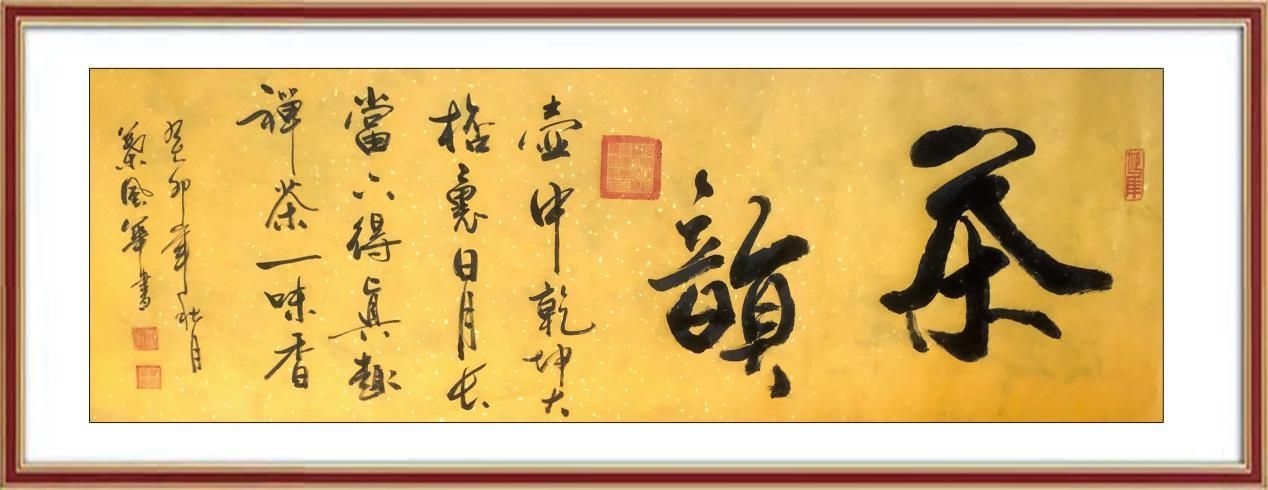 茶韻
壺中乾坤大
桮裏日月長
當下得真趣
禪茶一味香
癸卯年秋月
風華書